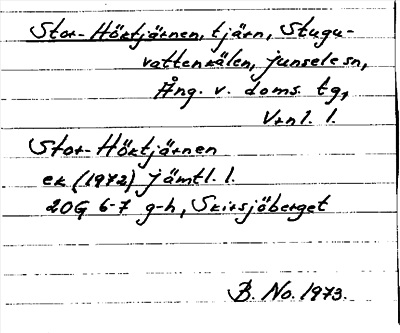 Stor-Hörtjärnen, tjärn, Stugu-
vattenkälen, Junsele sn,
Ång. v. doms. tg,
Vrnl. l.
Stor-Hörtjärnen
ek (1972) Jämtl. l.
20G 6-7 g-h, Skirsjöberget
B. No. 1973.